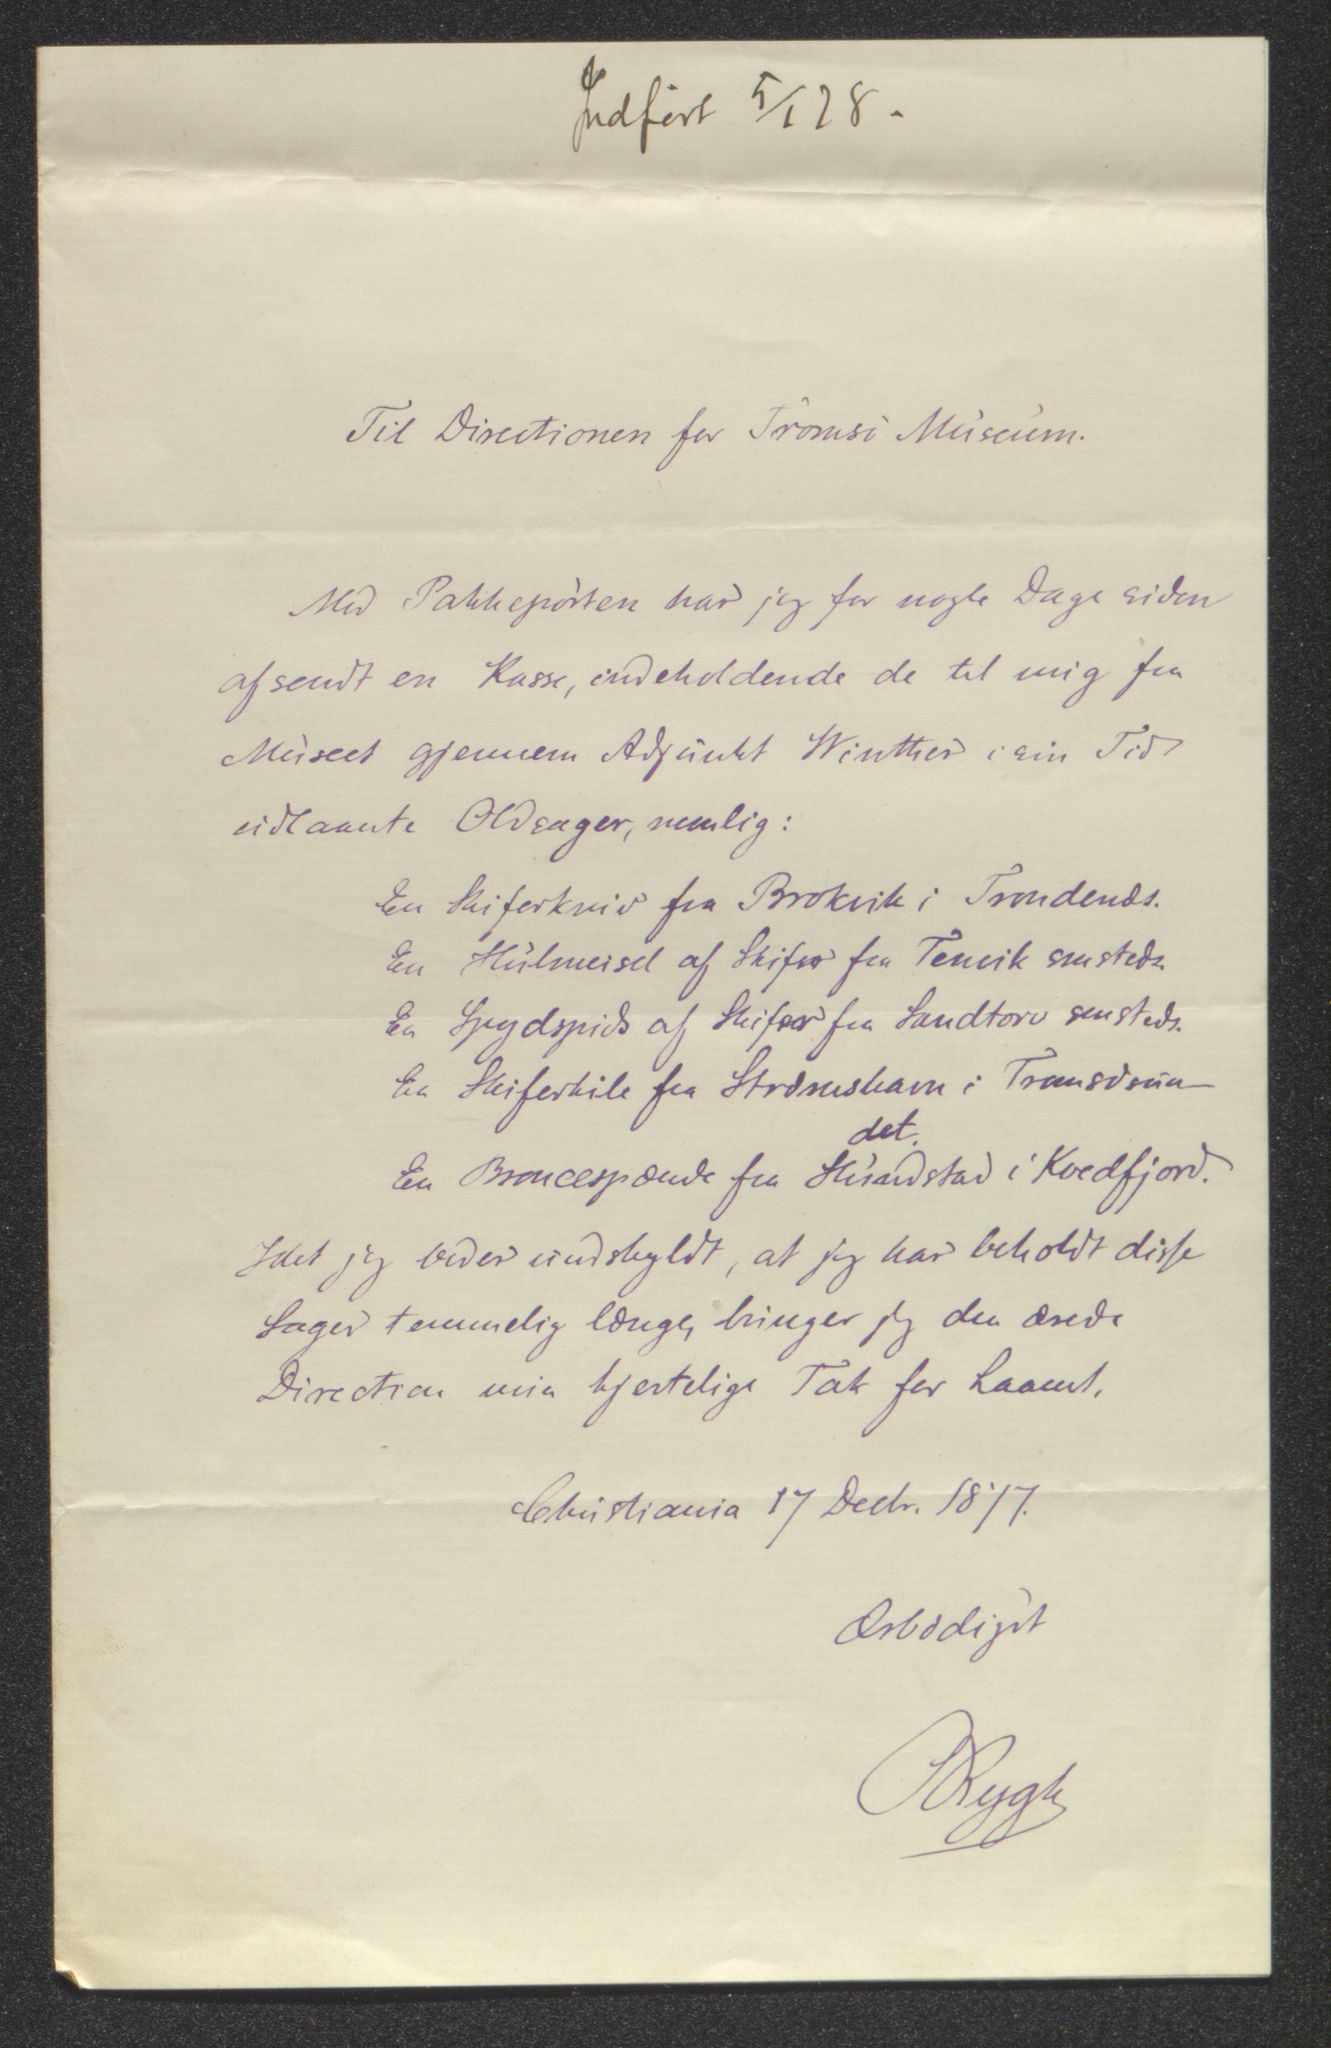 Indført 5/1 78.
Til Directionen for Tromsø Museum.
Med Pakkeposten har jeg for nogle Dage siden
afsendt en Kasse, indeholdende de til mig fra
Museet gjennem Adjunkt Winther i sin Tid
udlaante Oldsager, nemlig:
En Skiferkniv fra Brokvik i Trondenæs.
En Hulmeisel af Skifer fra Tennvik smsteds.
En Spydspids af Skifer fra Sandtorv smsteds.
En Skiferkile fra Strømshavn i Tromsøsun-
det.
En Broncespænde fra Hundstad i Kvedfjord.
Idet jeg beder undskyldt, at jeg har beholdt disse
Sager temmelig længe, bringer jeg den ærede
Direction min hjertelige Tak for Laanet.
Christiania 17 Decbr. 1877.
Ærbødigst
ORygh